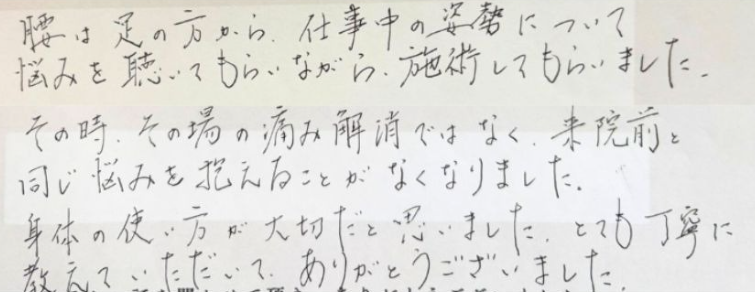 腰は足の方から、仕事中の姿勢について
悩みを聴いてもらいながら、施術してもらいました。
その時、その場の痛み解消ではなく、来院前と
同じ悩みを抱えることがなくなりました。
身体の使い方が大切だと思いました。とても丁寧に
教えていただいて、ありがとうございました。